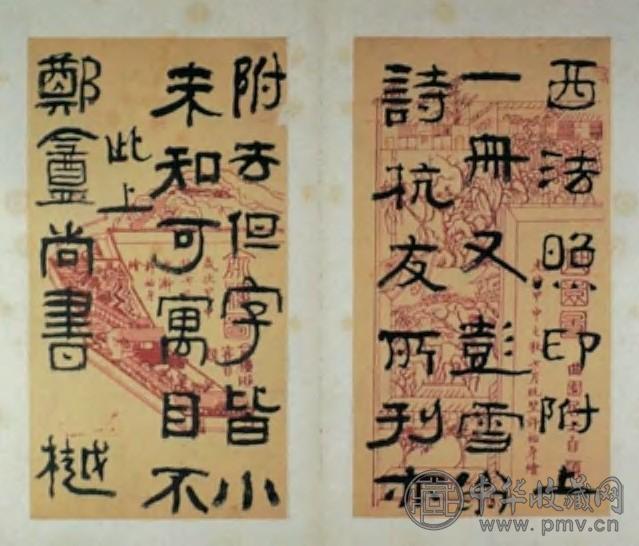 西法照印附上
一冊又彭雪
詩杭友所刊亦
附去但字皆小
未知可寓目不
此上
鄭盦尚書 樾
中华收藏网
www.pmv.cn